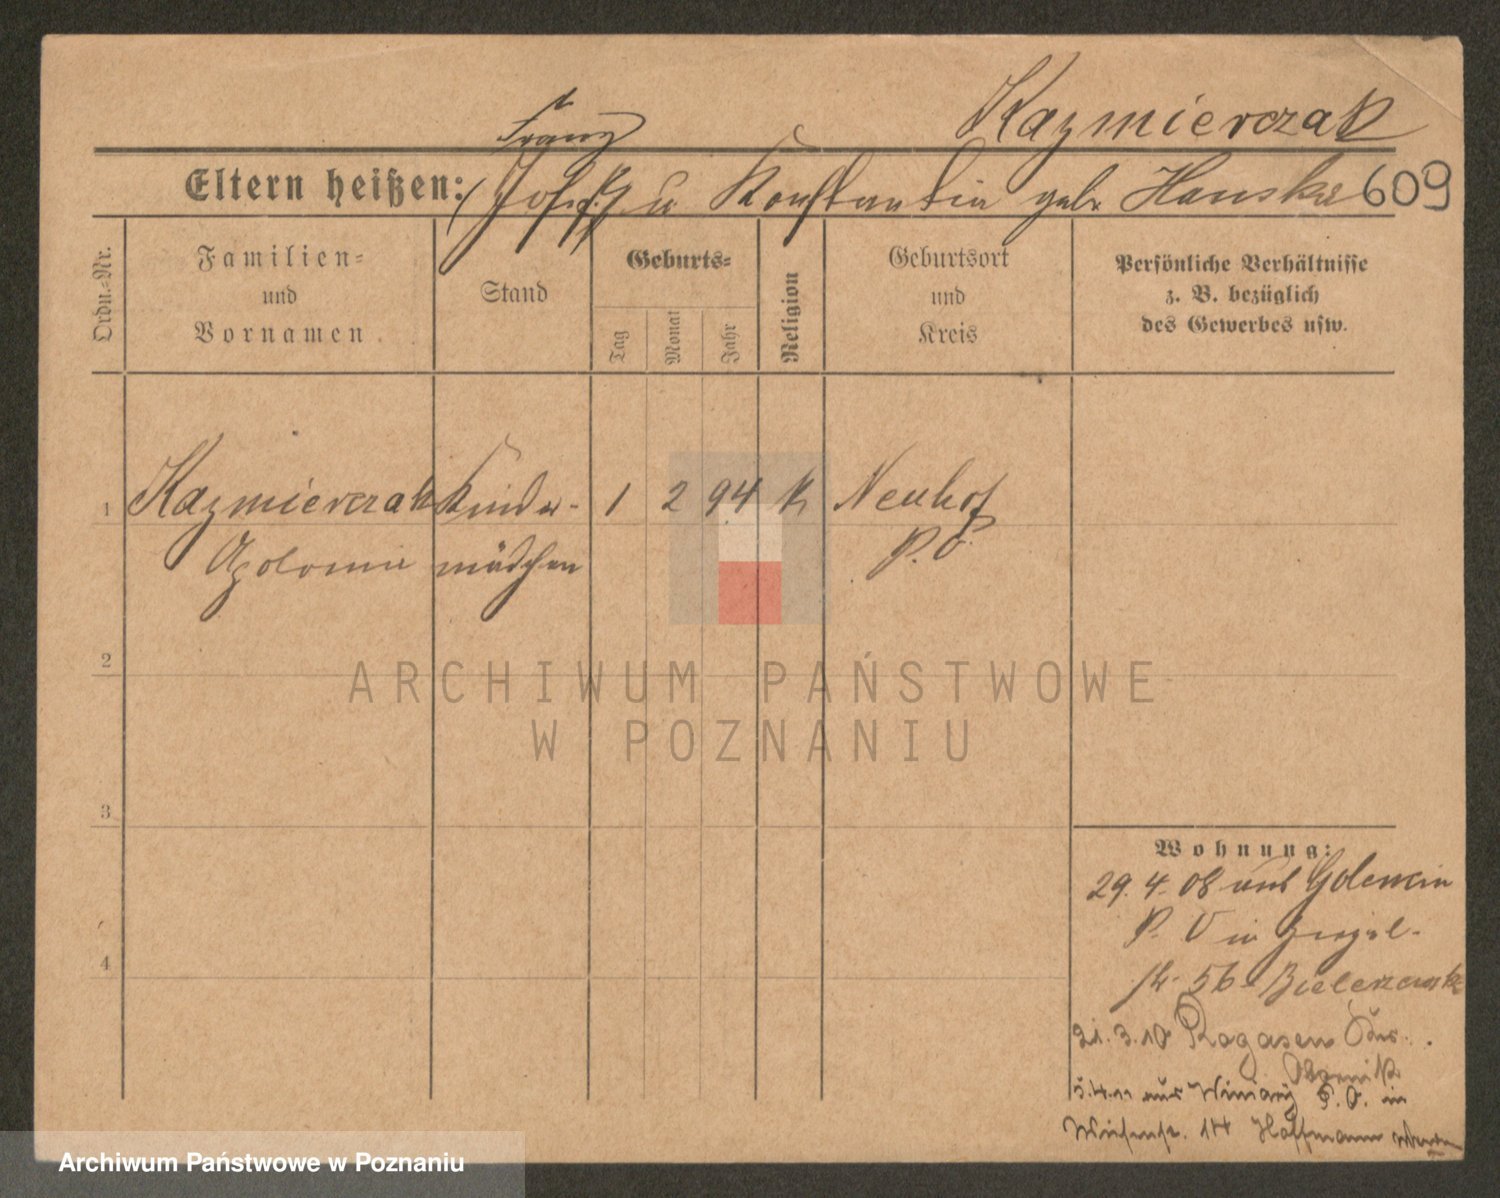 Kazmierczak
Franz
Eltern heißen: Josef u Konstantia geb. Hanska 609
Ordn.-Nr.
Familien-
und
Vornamen
Stand
Geburts-
Tag
Monat
Jahr
Religion
Geburtsort
und
Kreis
Persönliche Verhältnisse
z. B. bezüglich
des Gewerbes usw.
1 Kazmierczak Kinder- 1 2 94 K Neuhof
Apolonia mädchen P. O.
2
3
4
Wohnung:
29. 4. 08 aus Golencin
P. O in
56
21. 3. 10 Rogasen
Obornik
5.4.11 aus Winiary P. O. in
14 Hoffmann
ARCHIWUM PAŃSTWOWE
W POZNANIU
Archiwum Państwowe w Poznaniu